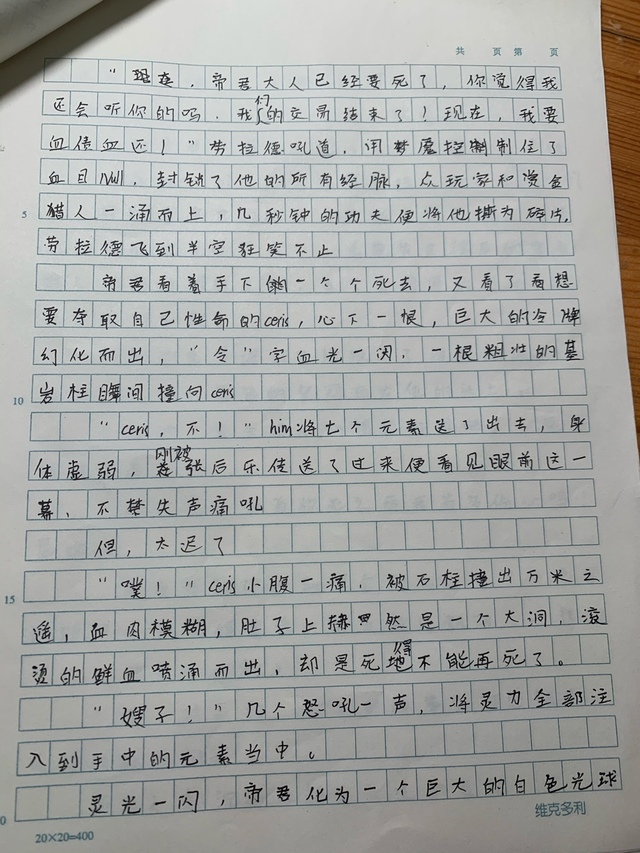 共 页 第 页
“现在,帝君大人已经要死了,你觉得我
还会听你的吗,我们的交易结束了!现在,我要
血债血还!”劳拉德吼道,用梦魇控制住了
血目Null,封锁了他的所有经脉,众玩家和赏金
猎人一涌而上,几秒钟的功夫便将他撕为碎片,
5
劳拉德飞到半空狂笑不止
帝君看着手下们一个个死去,又看了看想
要夺取自己性命的ceris,心下一恨,巨大的令牌
幻化而出,“令”字血光一闪,一根粗壮的基
岩柱瞬间撞向ceris
10
“ceris,不!”him将七个元素送了出去,身
体虚弱,刚被张后乐传送了过来便看见眼前这一
幕,不禁失声痛吼
但,太迟了
“噗!”ceris小腹一痛,被石柱撞出万米之
15
遥,血肉模糊,肚子上赫然是一个大洞,滚
烫的鲜血喷涌而出,却是死得不能再死了。
“嫂子!”几个怒吼一声,将灵力全部注
入到手中的元素当中。
灵光一闪,帝君化为一个巨大的白色光球
0
20×20=400
维克多利